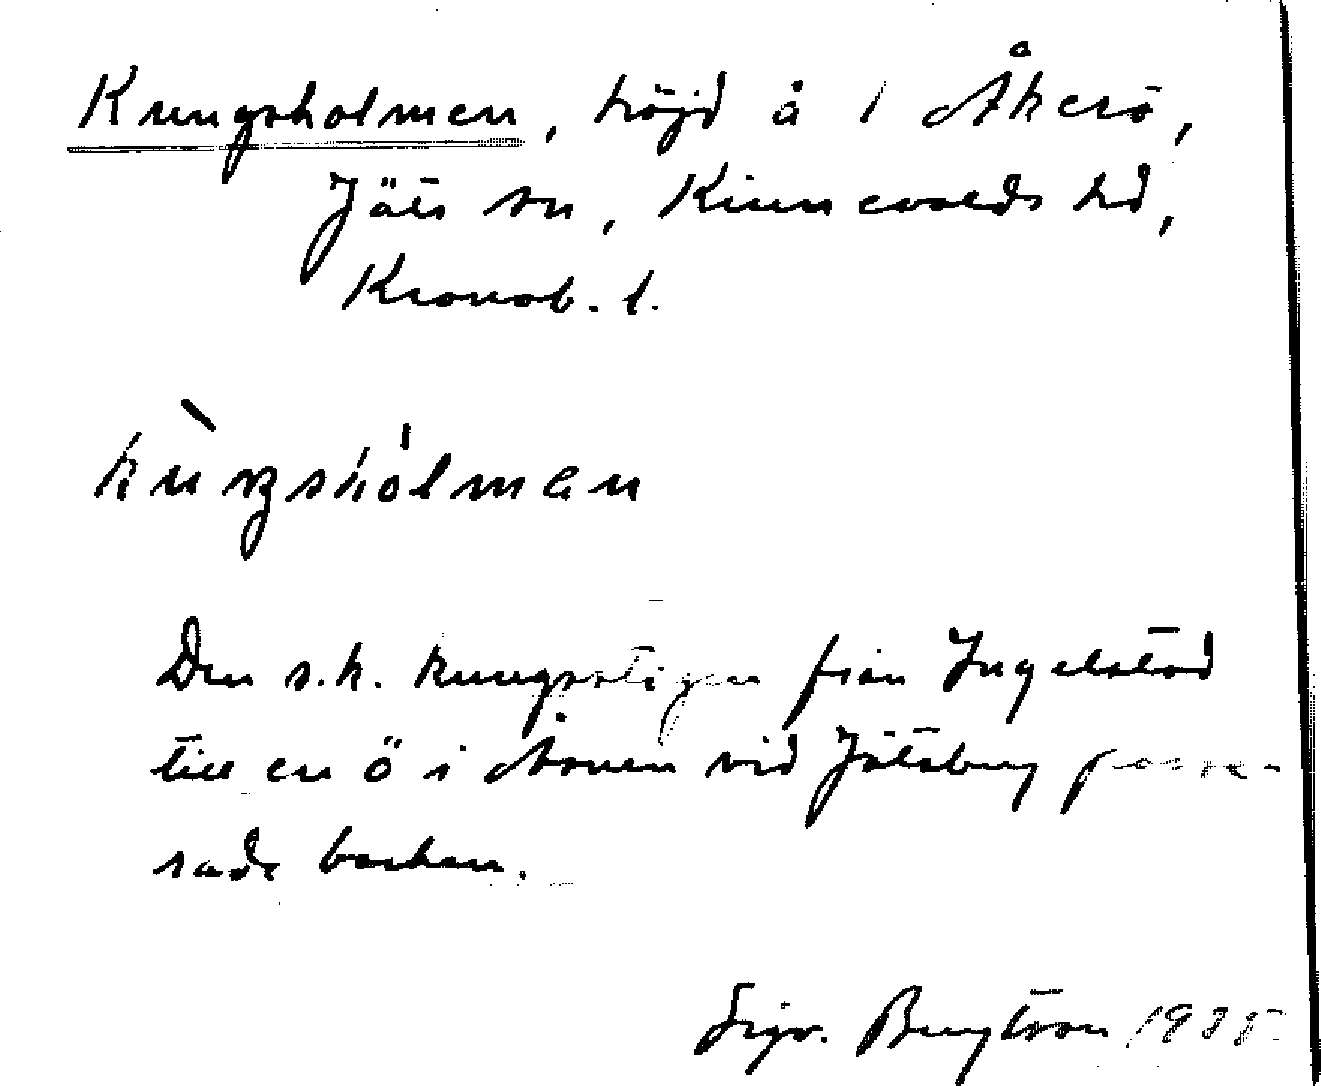 Kungsholmen, höjd å 1 Åkerö,
Jäts sn, Kinnevalds hd,
Kronob. l.
kùŋshólman
Den s.k. kungsstigen från Ingelstad
till en ö i Åsnen vid Jätsberg passe-
rade backen.
Sigv. Bengtson 1935